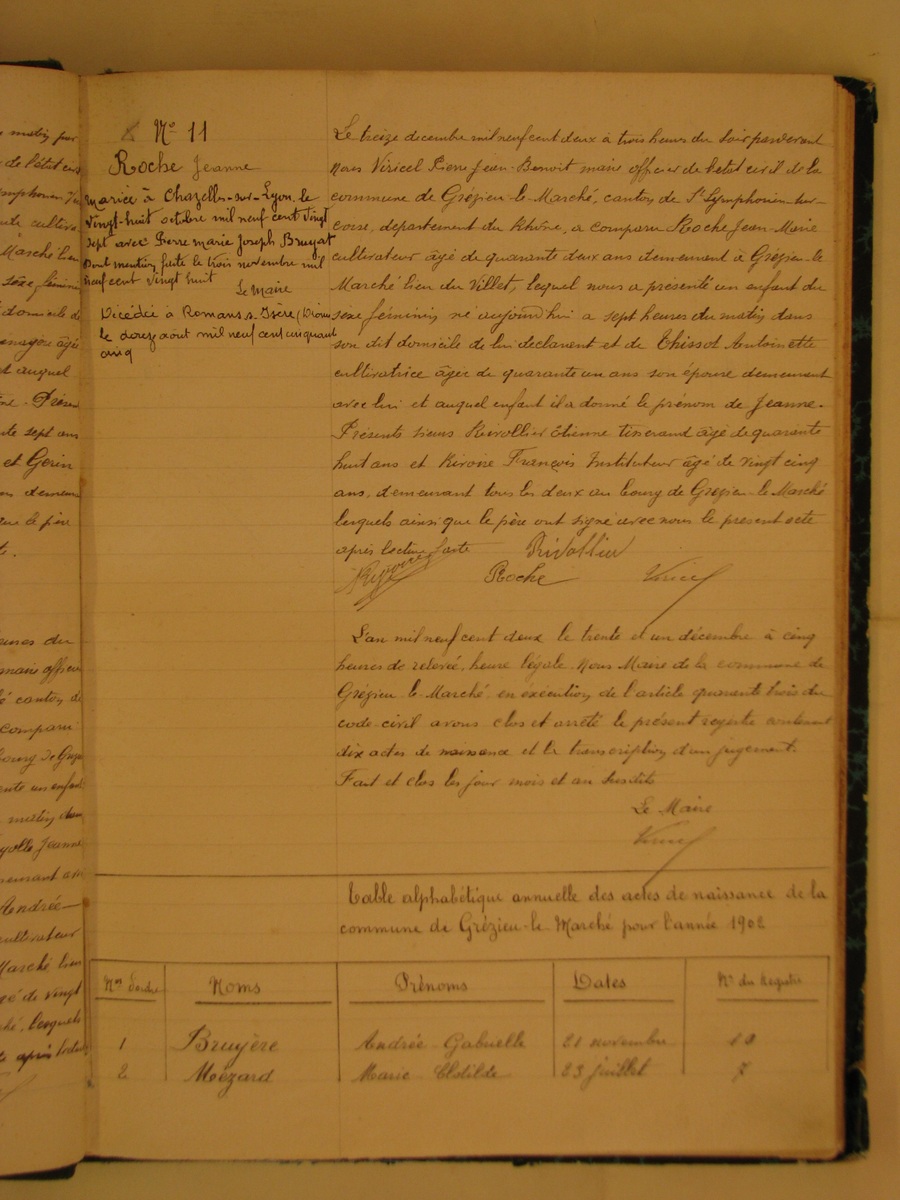 Nº 11
Roche Jeanne
mariée à Chazelles-sur-Lyon le
vingt-huit octobre mil neuf cent vingt
sept avec Pierre marie Joseph Bruyat
Dont mention faite le trois novembre mil
neuf cent vingt huit
Le Maire
Décédée à Romans s. Isère (Drôme
le douze août mil neuf cent cinquante
cinq
Le treize décembre mil neuf cent deux à trois heures du soir pardevant
Nous Viricel Pierre Jean-Benoit maire officier de l'etat civil de la
commune de Grézieu-le-Marché, canton de St Symphorien-sur-
coise, département du Rhône, a comparu Roche Jean-Marie
cultivateur âgé de quarante deux ans demeurant à Grézieu-le
Marché lieu du Villet, lequel nous a présenté un enfant du
sexe féminin né aujourd'hui a sept heures du matin dans
son dit domicile de lui declarant et de Thissot Antoinette
cultivatrice âgée de quarante un ans son épouse demeurant
avec lui et auquel enfant il a donné le prénom de Jeanne.
Présents sieurs Rivollier Etienne tisserand âgé de quarante
huit ans et Rivoire François Instituteur âgé de vingt cinq
ans, demeurant tous les deux au bourg de Grézieu-le-Marché
lesquels ainsi que le père ont signé avec nous le present acte
après lecture faite
Rivollier
Roche
Viricel
L'an mil neuf cent deux le trente et un décembre à cinq
heures de relevée, heure légale Nous Maire de la commune de
Grézieu-le-Marché en exécution de l'article quarante trois du
code civil avons clos et arrêté le présent registre contenant
dix actes de naissance et la transcription d'un jugement.
Fait et clos les jour mois et an susdits
Le Maire
Viricel
Table alphabétique annuelle des actes de naissance de la
commune de Grézieu-le Marché pour l'année 1902
Nos d'ordre Noms Prénoms Dates Nos du Registre
1 Bruyère Andrée Gabrielle 21 novembre 10
2 Mézard Marie Clotilde 23 juillet 7